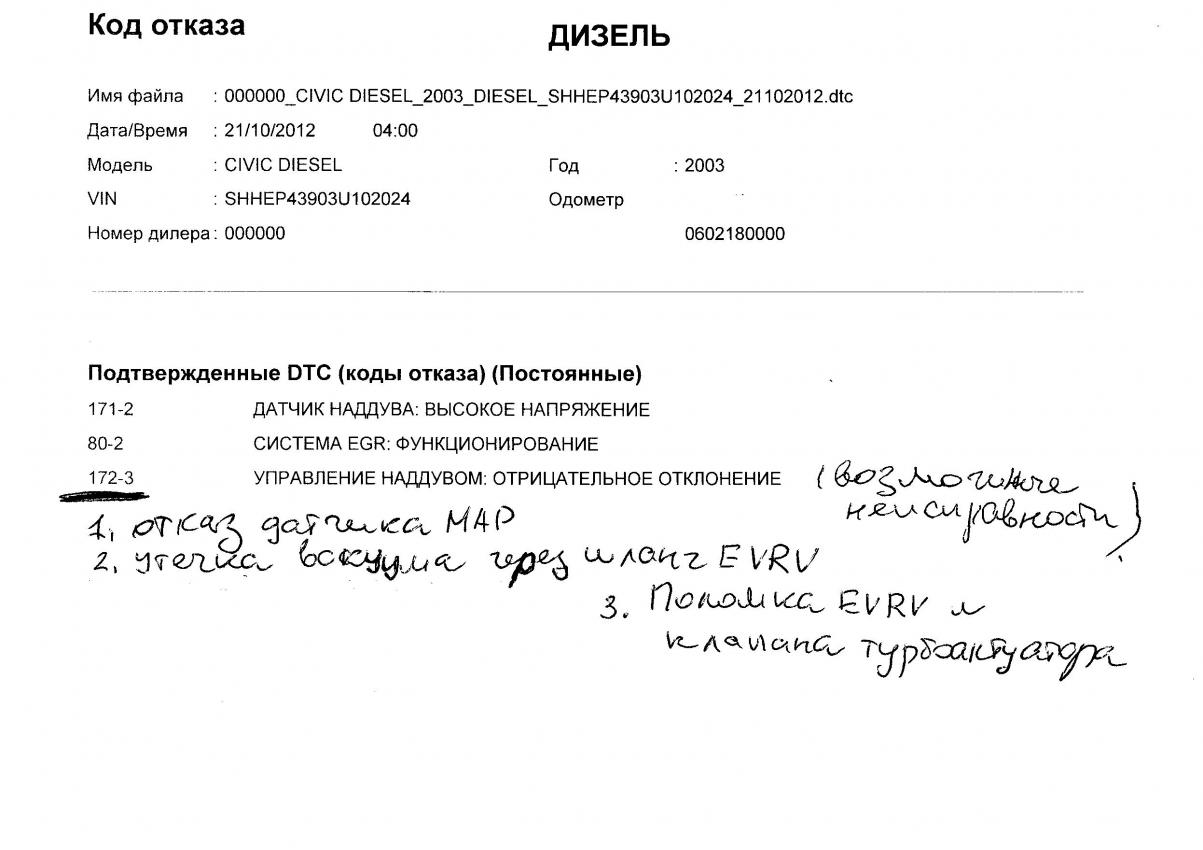 Код отказа
ДИЗЕЛЬ
Имя файла : 000000_CIVIC DIESEL_2003_DIESEL_SHHEP43903U102024_21102012.dtc
Дата/Время : 21/10/2012 04:00
Модель : CIVIC DIESEL Год : 2003
VIN : SHHEP43903U102024 Одометр
Номер дилера : 000000 0602180000
Подтвержденные DTC (коды отказа) (Постоянные)
171-2 ДАТЧИК НАДДУВА: ВЫСОКОЕ НАПРЯЖЕНИЕ
80-2 СИСТЕМА EGR: ФУНКЦИОНИРОВАНИЕ
172-3 УПРАВЛЕНИЕ НАДДУВОМ: ОТРИЦАТЕЛЬНОЕ ОТКЛОНЕНИЕ (возможные
неисправности)
1, отказ датчика MAP
2, утечка вакуума через шланг EVRV
3. Поломка EVRV и
клапана турбоактуатора